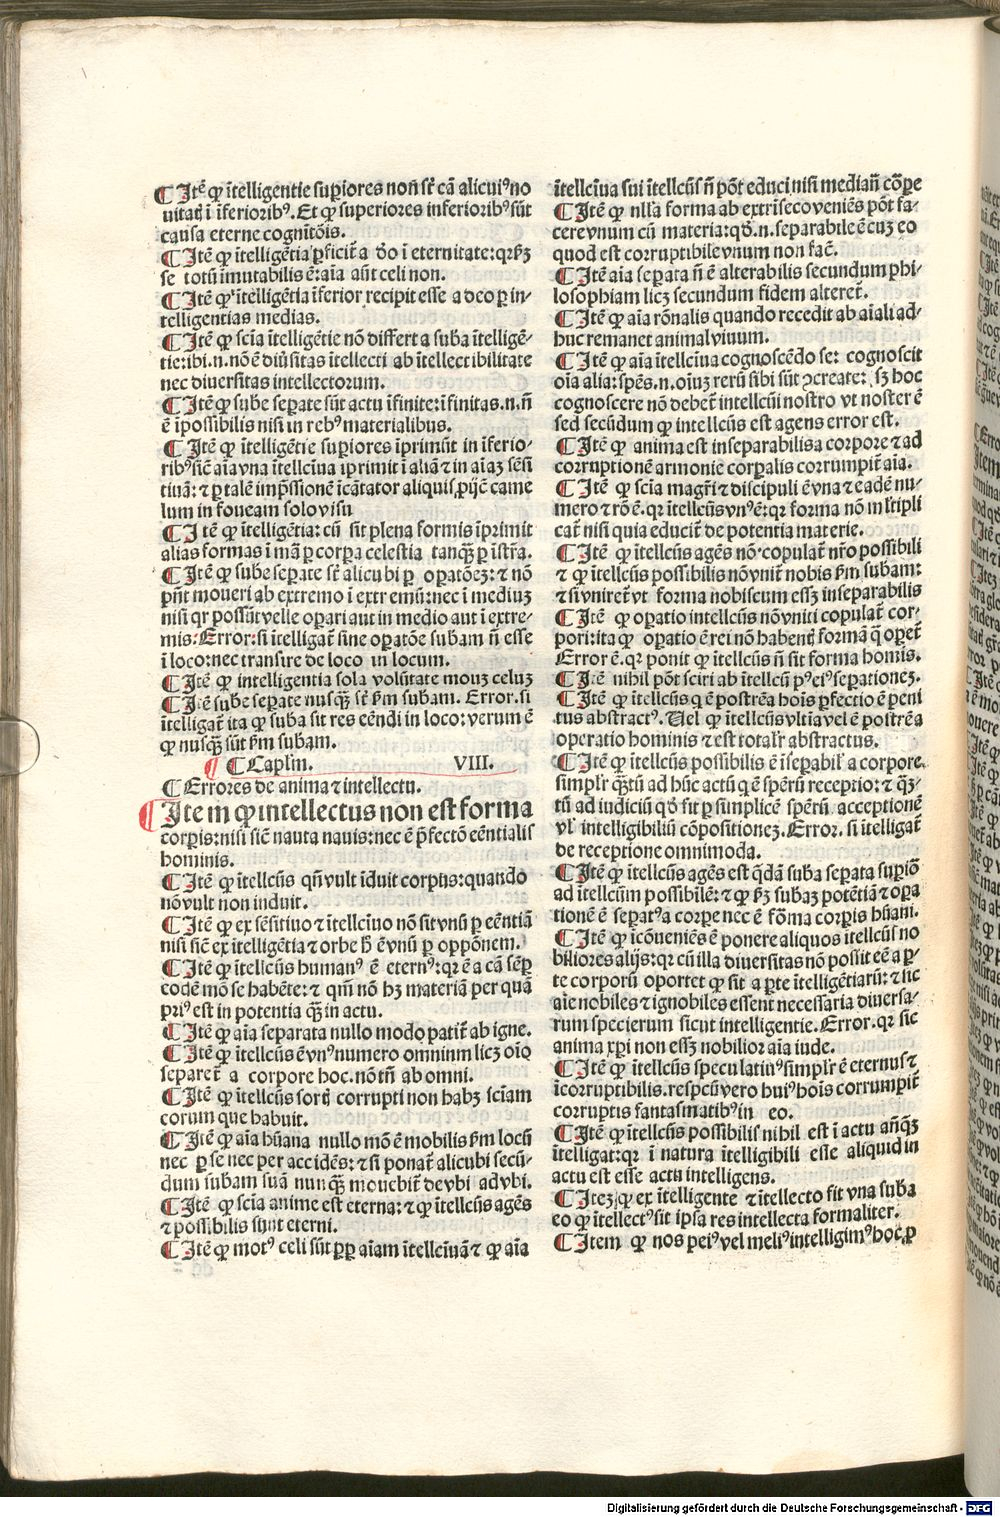 ¶ Itē ꝙ ītelligentie sup̄iores non sūt cā alicuiꝰ no
uitatꝭ ī īferioribꝰ. Et ꝙ superiores inferioribꝰ sūt
causa eterne cognitōis.
¶ Itē ꝙ ītelligētia ꝑficit̄ a deo ī eternitate: qꝛ ẜm
se totū imutabilis ē: aīa aūt celi non.
¶ Itē ꝙ ītelligētia īferior recipit esse a deo ꝑ in-
telligentias medias.
¶ Itē ꝙ scīa ītelligētie nō differt a suba ītelligē-
tie: ibi. n. nō ē diūsitas ītellecti ab ītellectibilitate
nec diuersitas intellectorum.
¶ Itē ꝙ sube seꝑate sūt actu īfinite: īfinitas. n. nō
ē īpossibilis nisi in rebꝰ materialibus.
¶ Itē ꝙ ītelligētie sup̄iores īprimūt in īferio-
ribꝰ sic̄ aīa vna ītellc̄iua īprimit ī aliā ⁊ in aīaꝫ sēsi
tiuā: ⁊ ꝑ talē imp̄ssionē īcātator aliquis ꝓijc̄ came
lum in foueam solo visu
¶ Itē ꝙ ītelligētia: cū sit plena formis īprimit
alias formas ī mā ꝑ corꝑa celestia tanqꝫ̄ ꝑ īstr̄a.
¶ Itē ꝙ sube seꝑate sūt alicubi ꝑ oꝑatōeꝫ: ⁊ nō
pn̄t moueri ab extremo ī extremū: nec ī mediuꝫ
nisi qꝛ possūt velle oꝑari aut in medio aut ī extre-
mis. Error: si ītelligat̄ sine oꝑatōe subam nō esse
ī loco: nec transire de loco in locum.
¶ Itē ꝙ intelligentia sola volūtate mouꝫ celuꝫ
¶ Itē sube seꝑate nusqꝫ̄ sūt ẜm subam. Error. si
ītelligat̄ ita ꝙ suba sit res eēndi in loco: verum ē
ꝙ nusqꝫ̄ sūt ẜm subam.
¶ Caplm̄. VIII.
¶ Errores de anima ⁊ intellectu.
¶ Item ꝙ intellectus non est forma
corꝑis: nisi sic̄ nauta nauis: nec ē ꝑfectō eēntialis
hominis.
¶ Itē ꝙ ītellc̄us qn̄ vult īduit corpus: quando
nō vult non induit.
¶ Itē ꝙ ex sēsitiuo ⁊ ītellc̄iuo nō sit vnū ꝑ eēntiā
nisi sic̄ ex ītelligētia ⁊ orbe h̄ ē vnū ꝑ opꝑōnem.
¶ Itē ꝙ ītellc̄us humanꝰ ē eternꝰ: qꝛ ē a cā sēꝑ
eodē mō se habēte: ⁊ qm̄ nō hꝫ materiā per quā
priꝰ est in potentia qꝫ̄ in actu.
¶ Itē ꝙ aīa separata nullo modo patit̄ ab igne.
¶ Itē ꝙ ītellc̄us ē vnꝰ numero omnium licꝫ oīo
separet̄ a corpore hoc. nō tn̄ ab omni.
¶ Itē ꝙ ītellc̄us sortꝭ corrupti non habꝫ sciam
eorum que habuit.
¶ Itē ꝙ aīa hūana nullo mō ē mobilis ẜm locū
nec ꝑ se nec per accidēs: ⁊ si ponat̄ alicubi secū-
dum subam suā nunqꝫ̄ mouebit̄ de vbi ad vbi.
¶ Itē ꝙ scīa anime est eterna: ⁊ ꝙ ītellc̄us agēs
⁊ possibilis sunt eterni.
¶ Itē ꝙ motꝰ celi sūt ꝓpꝑ aīam ītellc̄iuā ⁊ ꝙ aīa
ītellc̄iua siui ītellc̄us n̄ pōt educi nisi median̄ cōꝑe
¶ Itē ꝙ nlla forma ab extrīseco veniēs pōt fa-
cere vnum cū materia: qd̄. n. separabile ē cuꝫ eo
quod est corruptibile vnum non fac̄.
¶ Itē aīa seꝑata n̄ ē alterabilis secundum phi-
losophiam licꝫ secundum fidem alteret̄.
¶ Itē ꝙ aīa rōnalis quando recedit ab aīali ad-
huc remanet animal viuum.
¶ Itē ꝙ aīa ītellc̄iua cognoscēdo se: cognoscit
oīa alia: spēs. n. oīuꝫ rerū sibi sūt ꝯcreate: sꝫ hoc
cognoscere nō debet̄ intellc̄ui nostro vt noster ē
sed secūdum ꝙ intellc̄us est agens error est.
¶ Itē ꝙ anima est inseparabilis a corpore ⁊ ad
corruptionē armonie corꝑalis corrumpit̄ aīa.
¶ Itē ꝙ scīa magr̄i ⁊ discipuli ē vna ⁊ eadē nu-
mero ⁊ rō ē. qꝛ ītellc̄us vnꝰ ē: qꝛ forma nō ml̄tipli
cat̄ nisi quia educit̄ de potentia materie.
¶ Itē ꝙ ītellc̄us agēs nō copulat̄ nr̄o possibili
⁊ ꝙ ītellc̄us possibilis nō vnit̄ nobis ẜm subam:
⁊ si vniret̄ vt forma nobiscum essꝫ inseparabilis
¶ Itē ꝙ operatio intellc̄us nō vniti copulat̄ cor-
pori: ita ꝙ opatio ē rei nō habentꝭ formā q̄ oꝑet̄
Error ē. qꝛ ponit ꝙ ītellc̄us n̄ sit forma homīs.
¶ Itē nihil pōt sciri ab ītellc̄u pꝰ eiꝰ seꝑationeꝫ.
¶ Itē ꝙ ītellc̄us q̄ ē postrēa hoīs ꝑfectio ē peni
tus abstractꝰ. Uel ꝙ ītellc̄us vltīa vel ē postrēa
operatio hominis ⁊ est totalr̄ abstractus.
¶ Itē ꝙ ītellc̄us possibilis ē īseꝑabil̄ a corpore
simplr̄ qꝫ̄tū ad hūc actū q̄ ē spērū receptio: ⁊ qꝫ̄-
tū ad iudiciū qd̄ fit ꝑ simplicē spērū acceptionē
vl̄ intelligibiliū cōpositioneꝫ. Error. si ītelligat̄
de receptione omnimoda.
¶ Itē ꝙ ītellc̄us agēs est qd̄ā suba seꝑata suꝑiō
ad ītellc̄um possibilē: ⁊ ꝙ ẜm subaꝫ potētiā ⁊ oꝑa
tionē ē seꝑatꝰ a corꝑe nec ē fōma corꝑis hūani.
¶ Itē ꝙ īcōueniēs ē ponere aliquos ītellc̄us no
biliores alijs: qꝛ cū illa diuersitas nō possit eē a ꝑ-
te corporū oportet ꝙ sit a ꝑte ītelligētiarū: ⁊ sic
aīe nobiles ⁊ ignobiles essent necessaria diuersa-
rum specierum sicut intelligentie. Error. qꝛ sic
anima xp̄i non essꝫ nobilior aīa iude.
¶ Itē ꝙ ītellc̄us speculatiuꝰ simplr̄ ē eternus ⁊
īcorruptibilis. respcū vero huiꝰ hoīs corrumpit̄
corruptis fantasmatibꝰ in eo.
¶ Itē ꝙ ītellc̄us possibilis nihil est ī actu an̄qꝫ̄
ītelligat: qꝛ ī natura ītelligibili esse aliquid in
actu est esse actu intelligens.
¶ Iteꝫ ꝙ ex ītelligente ⁊ ītellecto fit vna suba
eo ꝙ ītellectꝰ sit ipsa res intellecta formaliter.
¶ Item ꝙ nos peiꝰ vel meliꝰ intelligimꝰ hoc ꝓ
Digitalisierung gefördert durch die Deutsche Forschungsgemeinschaft - DFG